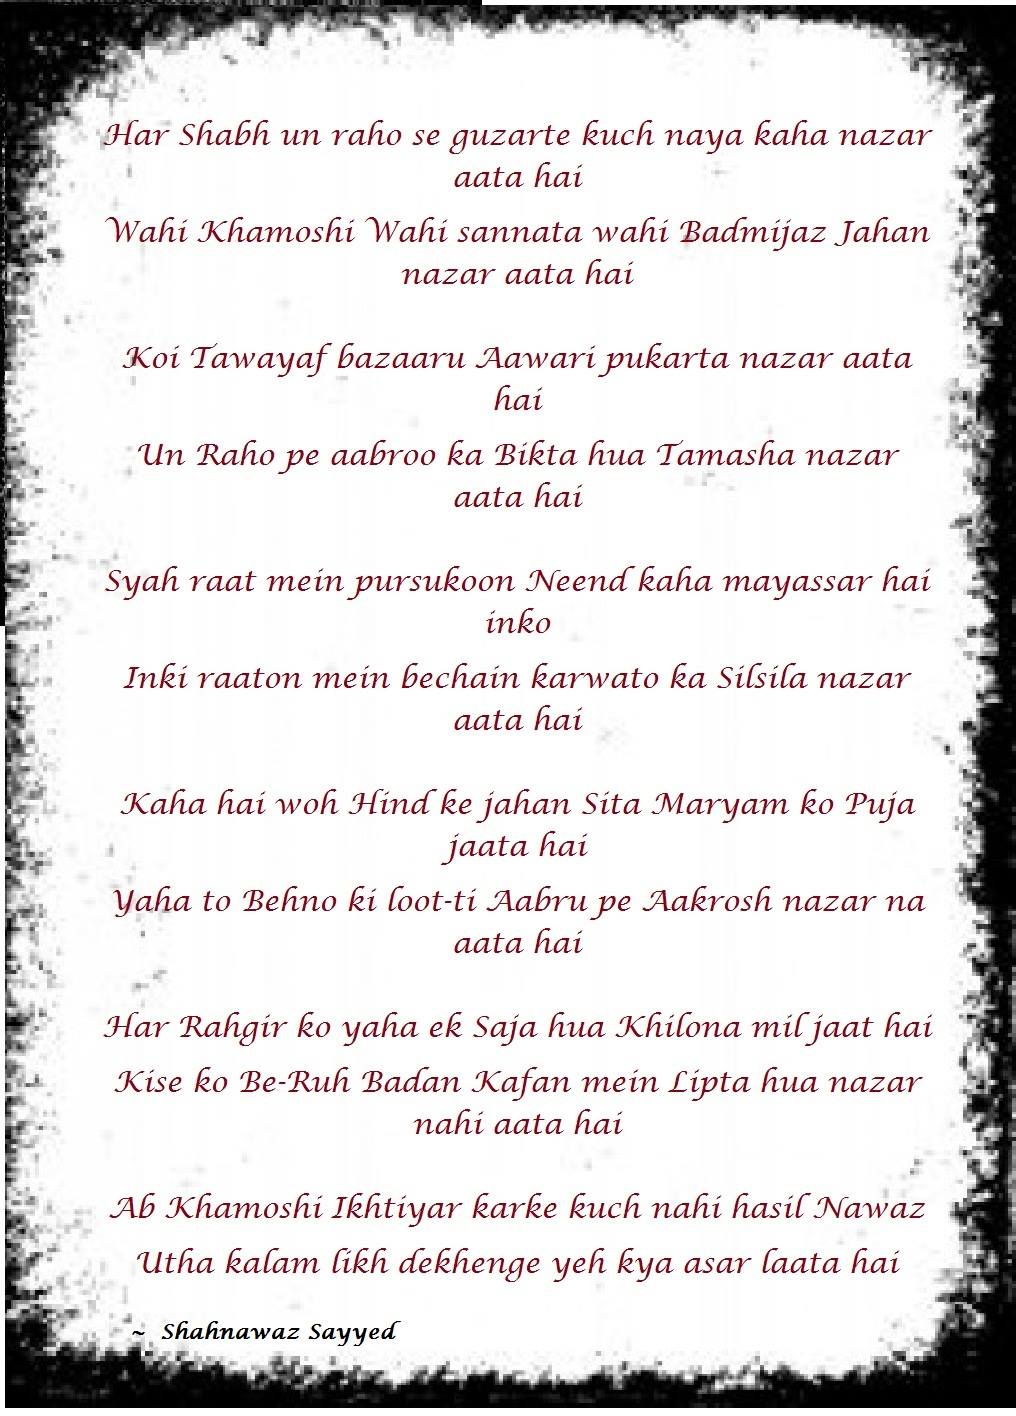 Har Shabh un raho se guzarte kuch naya kaha nazar
aata hai
Wahi Khamoshi Wahi sannata wahi Badmijaz Jahan
nazar aata hai
Koi Tawayaf bazaaru Aawari pukarta nazar aata
hai
Un Raho pe aabroo ka Bikta hua Tamasha nazar
aata hai
Syah raat mein pursukoon Neend kaha mayassar hai
inko
Inki raaton mein bechain karwato ka Silsila nazar
aata hai
Kaha hai woh Hind ke jahan Sita Maryam ko Puja
jaata hai
Yaha to Behno ki loot-ti Aabru pe Aakrosh nazar na
aata hai
Har Rahgir ko yaha ek Saja hua Khilona mil jaat hai
Kise ko Be-Ruh Badan Kafan mein Lipta hua nazar
nahi aata hai
Ab Khamoshi Ikhtiyar karke kuch nahi hasil Nawaz
Utha kalam likh dekhenge yeh kya asar laata hai
~ Shahnawaz Sayyed